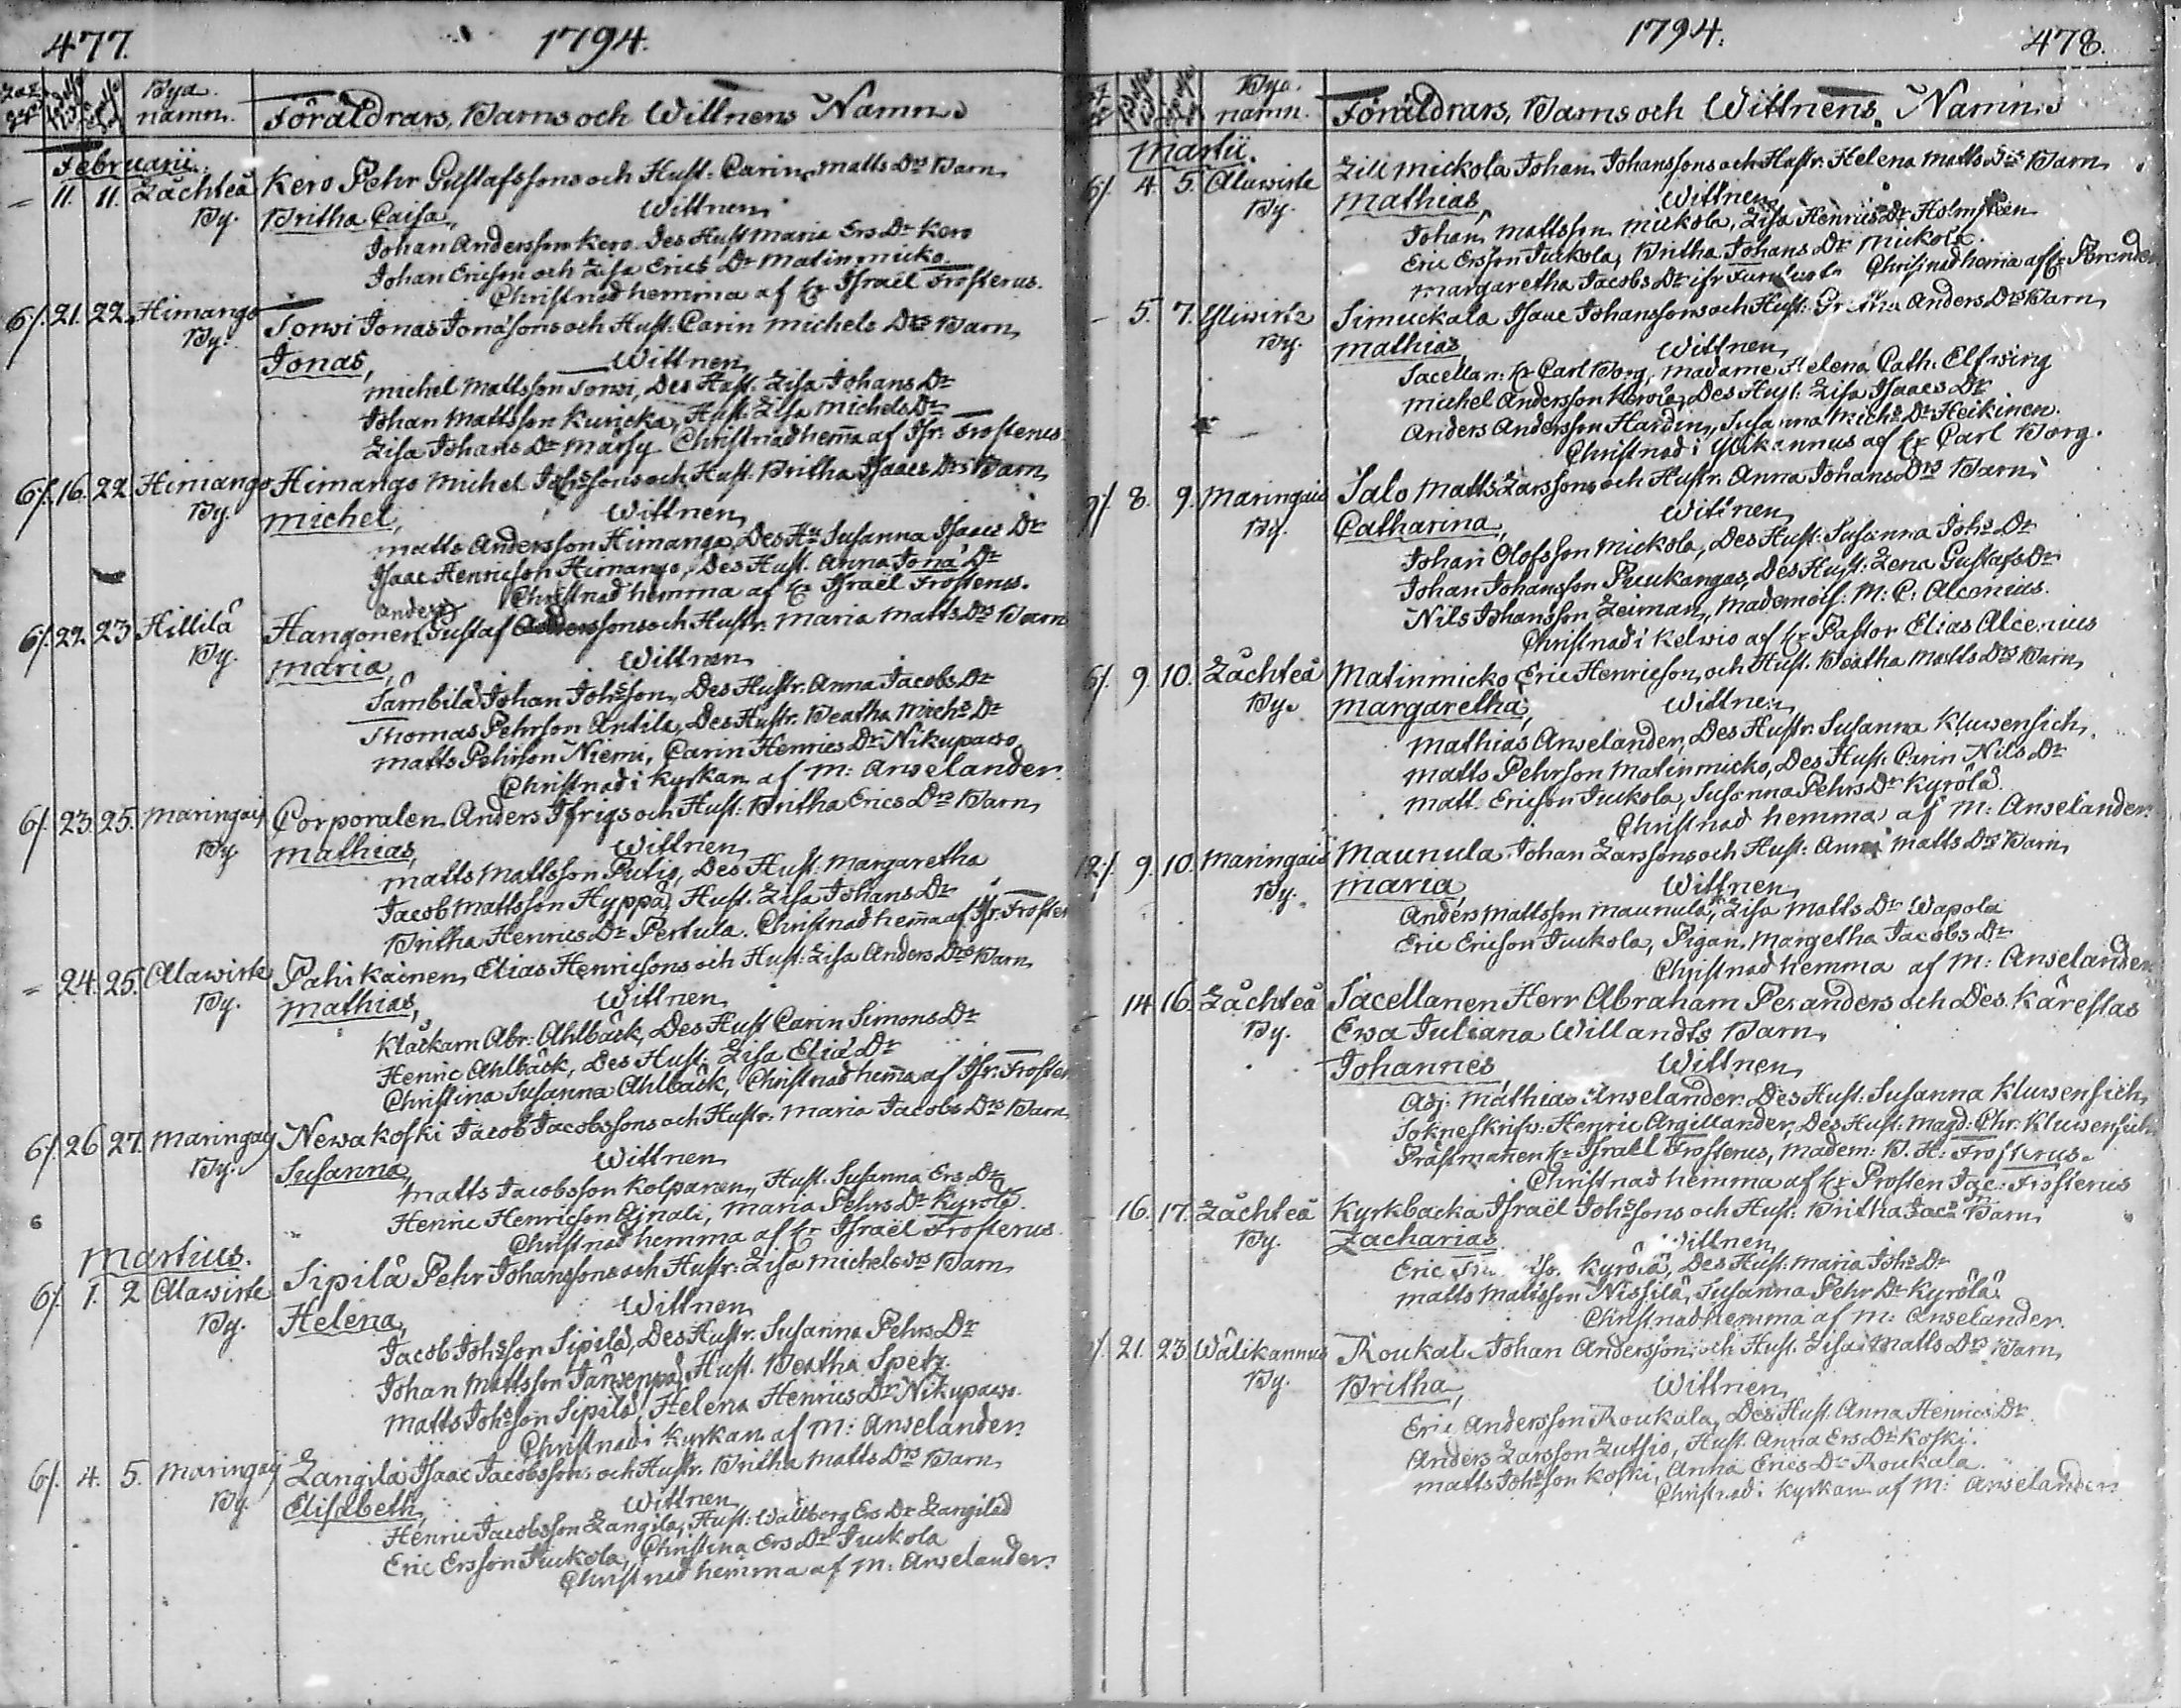 477. 1794.
Bya namn. Föräldrars, Barns och Wittnens Namn
Februarii.
11. 11. Låchteå Kero Pehr Gustafssons och Hust. Carin Matts Drs Barn
By. Britha Caisa, Wittnen
Johan Andersson Kero. Des Hust Maria Ers Dr Kero
Johan Ericson och Lisa Erics Dr Matinmicko.
Christnad hemma af Hr Israël Frosterus.
6/. 21. 22. Himango Torwi Jonas Jonæsons och Hust. Carin Michels Drs Barn
By. Jonas, Wittnen
Michel Mattsson Torwi, Des Hust. Lisa Johans Dr
Johan Mattsson Kuricka, Hust. Lisa Michels Dr
Lisa Johans Dr Marsy Christnad hem̄a af Isr. Frosterus
6/. 16. 22. Himango Himango Michel Johssons och Hust. Britha Isaacs Drs Barn
By. Michel, Wittnen
Matts Andersson Himango, Des Hu Susanna Isaacs Dr
Isaac Henricson Himango, Des Hust. Anna Jonæ Dr
Christnad hemma af Hr Israël Frosterus.
Anders
6/. 22. 23 Hillilä Hangonen Gustaf Anderssons och Hustr. Maria Matts Drs Barn
By. Maria, Wittnen
Sämbilä Johan Johsson, Des Hustr. Anna Jacobs Dr
Thomas Pehrson Antila, Des Hustr. Beatha Michs Dr
Matts Pehrson Niemi, Carin Henrics Dr Nikupawo
Christnad i Kyrkan af M: Anselander.
6/. 23. 25. Maringais Corporalen Anders Ifrigs och Hust. Britha Erics Drs Barn
By. Mathias, Wittnen
Matts Mattsson Putio, Des Hust. Margaretha
Jacob Mattsson Hyppä, Hust. Lisa Johans Dr
Britha Henrics Dr Pertula. Christnad hem̄a af Isr. Froster
24. 25. Alawirte Pahikainen Elias Henricsons och Hust: Lisa Anders Drs Barn
By. Mathias, Wittnen
Klåckarn Abr: Ahlbäck, Des Hust Carin Simons Dr
Henric Ahlbäck, Des Hust: Lisa Eliæ Dr
Christina Susanna Ahlbäck, Christnad hem̄a af Isr. Froster
6/. 26 27. Maringais Newakoski Jacob Jacobssons och Hustr. Maria Jacobs Drs Barn
By. Susanna, Wittnen
Matts Jacobsson Kolpanen, Hust. Susanna Ers Dr
Henric Henricson Ajnali, Maria Pehrs Dr Kyrölä.
Christnad hemma af Hr Israël Frosterus.
Martius.
6/. 1. 2 Alawirte Sipilä Pehr Johanssons och Hustr: Lisa Michels Drs Barn
By. Helena, Wittnen
Jacob Johsson Sipilä, Des Hustr. Susanna Pehrs Dr
Johan Mattsson Jänsenpä, Hust. Beatha Spetz.
Matts Johsson Sipilä, Helena Henrics Dr Nikupawo.
Christnad i Kyrkan af M: Anselander.
6/. 4. 5. Maringais Langila Isaac Jacobssons och Hustr. Britha Matts Drs Barn
By. Elisabeth, Wittnen
Henric Jacobsson Langila, Hust: Wallborg Ers Dr Langilä
Eric Ersson Juckola, Christina Ers Dr Juckola
Christnad hemma af M: Anselander.
1794. 478.
Bya namn. Föräldrars, Barns och Wittnens Namn
Martii.
6/. 4. 5. Alawirte Lill Mickola Johan Johanssons och Hustr. Helena Matts Drs Barn
By. Mathias, Wittnen
Johan Mattsson Mickola, Lisa Henrics Dr Holmsteen
Eric Ersson Juckola, Britha Johans Dr Mickola.
Margaretha Jacobs Dr Christnad hemma af Hr Perander
5. 7. Yliwirte Simuckala Isaac Johanssons och Hust: Gretha Anders Drs Barn
By. Mathias, Wittnen
Sacellan: Hr Carl Borg, Madame Helena Cath. Elfwing
Michel Andersson Kerola, Des Hust: Lisa Isaacs Dr
Anders Andersson Harding, Susanna Michs Dr Heikinen.
Christnad i Ylikannus af Hr Carl Borg.
9/. 8. 9. Maringais Salo Matts Larssons och Hustr. Anna Johans Drs Barn
By. Catharina, Wittnen
Johan Olofsson Mickola, Des Hust: Susanna Johs Dr
Johan Johansson Puukangas, Des Hust: Lena Gustafs Dr
Nils Johansson Leiman, Mademois: M: C: Alcenius.
Christnad i Kelwio af Hr Pastor Elias Alcenius
6/. 9. 10. Låchteå Matinmicko Eric Henricsons och Hust. Beatha Matts Drs Barn
By. Margaretha, Wittnen
Mathias Anselander, Des Hustr. Susanna Kluwensich,
Matts Pehrson Matinmicko, Des Hust: Carin Nils Dr
Matt. Ericson Juckola, Susanna Pehrs Dr Kyrölä.
Christnad hemma af M: Anselander.
12/. 9. 10. Maringais Maunula Johan Larssons och Hust: Anna Matts Drs Barn
By. Maria, Wittnen
Anders Mattsson Maunula, Lisa Matts Dr Wapola
Eric Ericson Juckola, Pigan Margetha Jacobs Dr
Christnad hemma af M: Anselander.
14 16. Låchteå Sacellanen Herr Abraham Peranders och Des Kärestas
By. Ewa Juliana Willandts Barn
Johannes, Wittnen
Adj. Mathias Anselander. Des Hust: Susanna Kluwensich,
Sokneskrifv: Henric Argillander, Des Hust: Magd: Chr. Kluwensich
Prästmanen Hr Israël Frosterus, Madem: B. H: Frosterus.
Christnad hemma af Hr Prosten Jac: Frosterus
16. 17. Låchteå Kyrkbacka Israël Johssons och Hust: Britha Jacs Drs Barn
By. Zacharias, Wittnen
Eric Kyrölä, Des Hust: Maria Johs Dr
Matts Matisson Nissilä, Susanna Pehr Dr Kyrölä.
Christnad hemma af M: Anselander.
21. 23 Wälikannus Roukal. Johan Anderssons och Hust. Lisa Matts Drs Barn
By. Britha, Wittnen
Eric Andersson Roukala, Des Hust. Anna Henrics Dr
Anders Larsson Lutsio, Hust. Anna Ers Dr Koski.
Matts Johsson Koski, Anna Erics Dr Roukala.
Christnad i Kyrkan af M: Anselander.